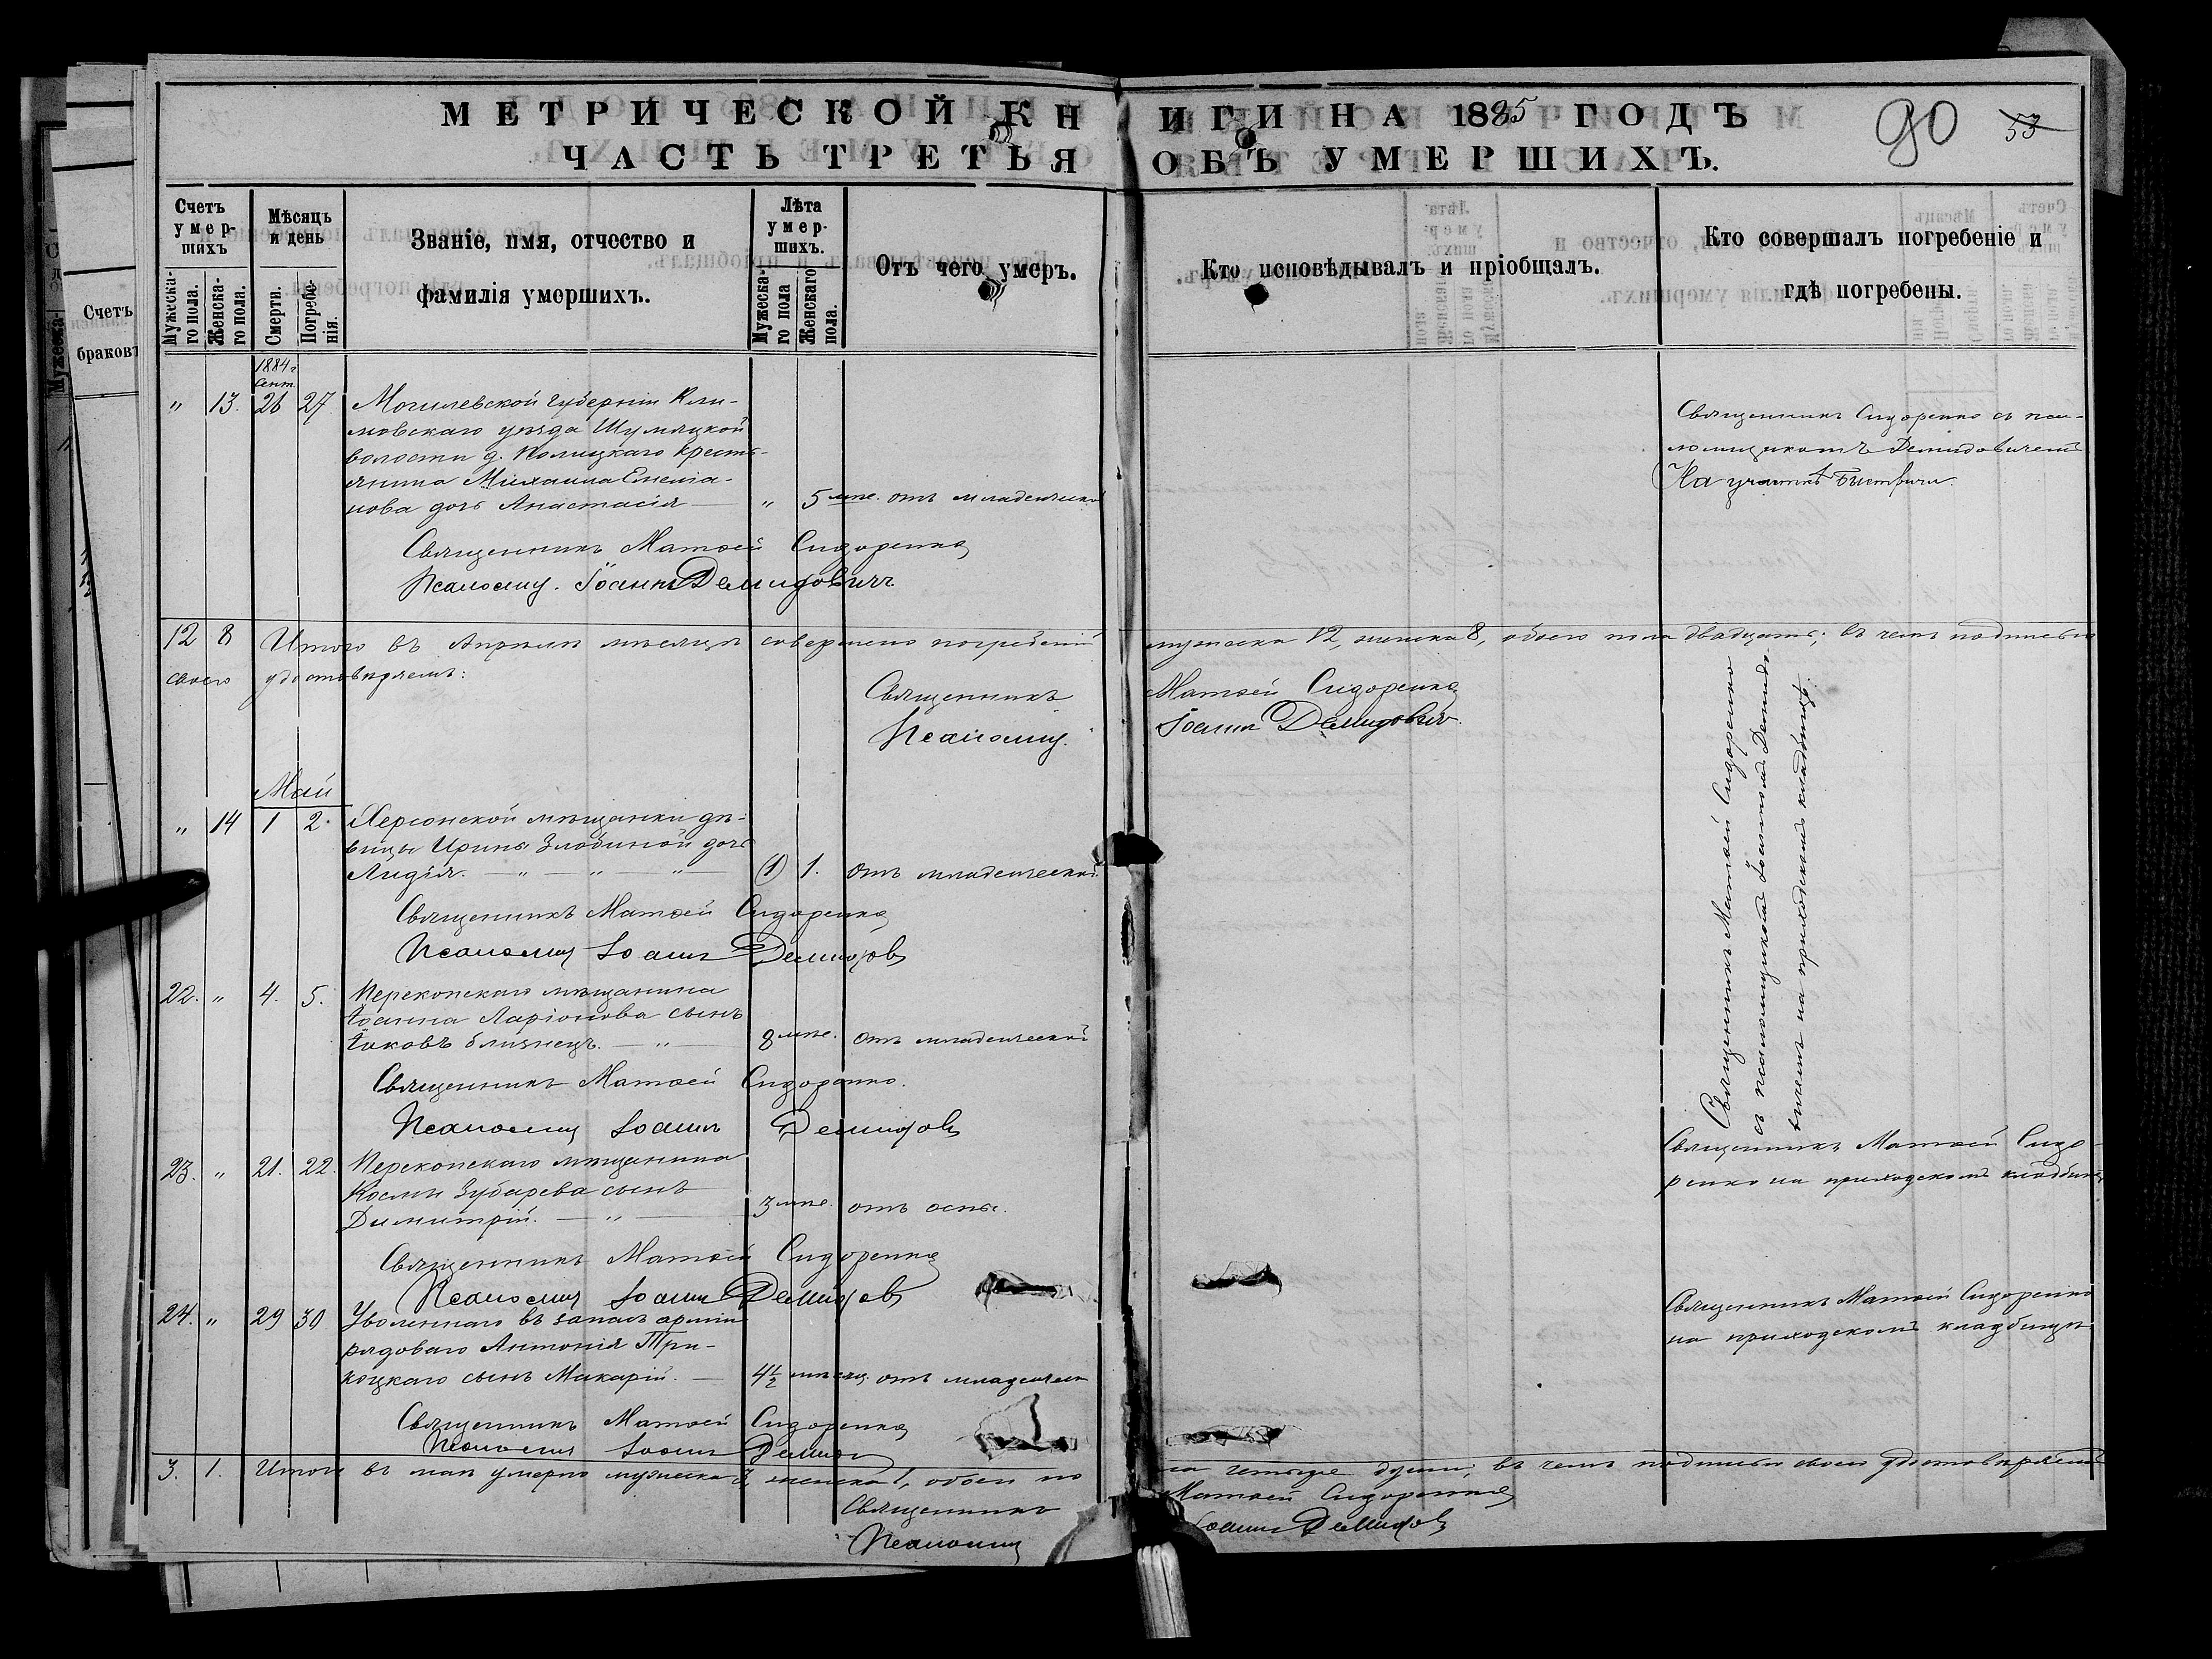 МЕТРИЧЕСКОЙ КНИГИ НА 1885 ГОДЪ
90 53
ЧАСТЬ ТРЕТЬЯ ОБЪ УМЕРШИХЪ.
Счетъ умер-шихъ
Мѣсяцъ и день
Званіе, имя, отчество и фамилія умершихъ.
Лѣта умер-шихъ.
Отъ чего умеръ.
Кто исповѣдывалъ и пріобщалъ.
Кто совершалъ погребеніе и гдѣ погребены.
Мужеска-го пола.
Женска-го пола.
Смерти.
Погребе-нія.
Мужеска-го пола
Женскаго пола.
Счетъ
браковъ
1884 г
Сент.
" 13. 26 27 Могилевской губерніи Кли-
мовскаго уѣзда Шумяцкой
волости д. крестья-
нина Михаила Емелія-
нова дочь Анастасія " 5 мце. отъ младенческой
Священникъ Сидоренко съ пса-
ломщикомъ Демидовичемъ
На участкѣ
Священникъ Матѳей Сидоренко
Псаломщ. Іоаннъ Демидовичъ
12 8 Итого въ Апрѣлѣ мѣсяцѣ совершено погребеній мужеска 12, женска 8, обоего пола двадцать; въ чемъ подписью
своею удостовѣряемъ:
Священникъ Матѳей Сидоренко
Псаломщ. Іоаннъ Демидовичъ
Май
" 14 1 2. Херсонской мѣщанки дѣ-
вицы Ирины Злобиной дочь
Лидія. " " " (1) 1. отъ младенческой
Священникъ Матѳей Сидоренко
Псаломщ Іоаннъ Демидов
Священникъ Матѳей Сидоренко
съ псаломщикомъ Іоанномъ Демидо-
вичемъ на приходскомъ кладбищѣ.
22. " 4. 5. Перекопскаго мѣщанина
Іоанна Ларіонова сынъ
Іаковъ близнецъ. " 8 мце. отъ младенческой
Священникъ Матѳей Сидоренко.
Псаломщ Іоаннъ Демидов
23. " 21. 22. Перекопскаго мѣщанина
Космы Зубарева сынъ
Димитрій. " 3 мце. отъ оспы.
Священникъ Матѳей Сидо-
ренко на приходскомъ кладбищѣ
Священникъ Матѳей Сидоренко
Псаломщ Іоаннъ Демидов
24. " 29 30 Уволеннаго въ запасъ арміи
рядоваго Антонія Три-
коцкаго сынъ Макарій. 4½ мѣсяц. отъ младенческ
Священникъ Матѳей Сидоренко
на приходскомъ кладбищѣ
Священникъ Матѳей Сидоренко
Псаломщ Іоаннъ Демидов
3. 1. Итого въ маѣ умерло мужеска 3, женска 1, обоего пола четыре души; въ чемъ подписью своею удостовѣряемъ
Священникъ Матѳей Сидоренко
Псаломщ Іоаннъ Демидов